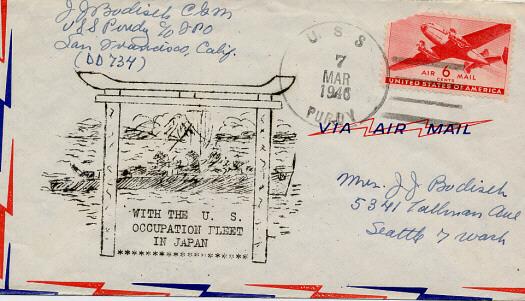 J J Bodisek CGM
USS Purdy c/o FPO
San Francisco, Calif.
(DD 734)
U S S
7
MAR
1946
PURDY
AIR 6 MAIL
CENTS
UNITED STATES OF AMERICA
VIA AIR MAIL
WITH THE U. S.
OCCUPATION FLEET
IN JAPAN
********************
Mrs. J J Bodisek
5341 Tallman Ave
Seattle 7 Wash